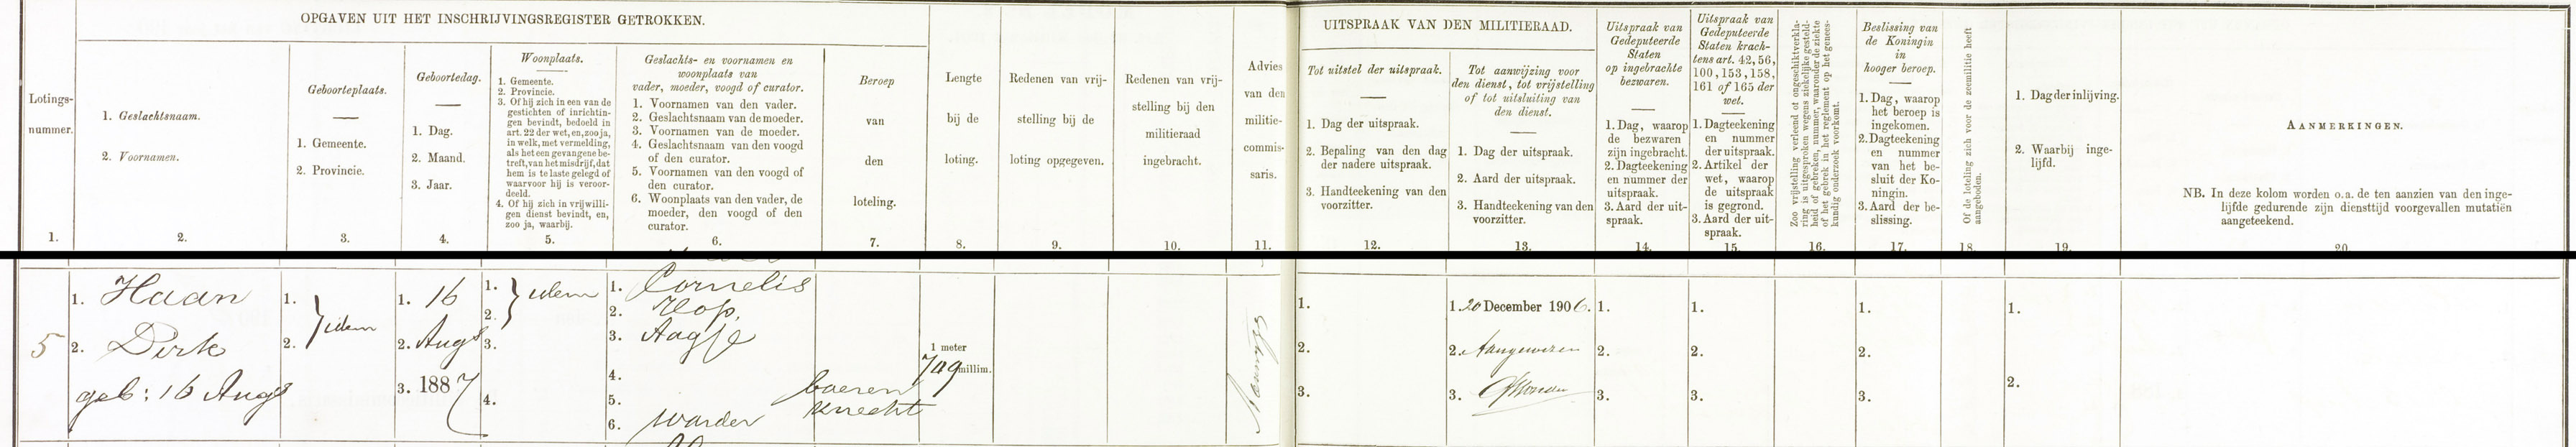 OPGAVEN UIT HET INSCHRIJVINGSREGISTER GETROKKEN.
Lotings-
nummer.
1.
1. Geslachtsnaam.
2. Voornamen.
2.
Geboorteplaats.
1. Gemeente.
2. Provincie.
3.
Geboortedag.
1. Dag.
2. Maand.
3. Jaar.
4.
Woonplaats.
1. Gemeente.
2. Provincie.
3. Of hij zich in een van de
gestichten of inrichtin-
gen bevindt, bedoeld in
art. 22 der wet, en, zoo ja,
in welk, met vermelding,
als het een gevangene be-
treft, van het misdrijf, dat
hem is te laste gelegd of
waarvoor hij is veroor-
deeld.
4. Of hij zich in vrijwilli-
gen dienst bevindt, en,
zoo ja, waarbij.
5.
Geslachts- en voornamen en
woonplaats van
vader, moeder, voogd of curator.
1. Voornamen van den vader.
2. Geslachtsnaam van de moeder.
3. Voornamen van de moeder.
4. Geslachtsnaam van den voogd
of den curator.
5. Voornamen van den voogd of
den curator.
6. Woonplaats van den vader, de
moeder, den voogd of den
curator.
6.
Beroep
van
den
loteling.
7.
Lengte
bij de
loting.
8.
Redenen van vrij-
stelling bij de
loting opgegeven.
9.
Redenen van vrij-
stelling bij den
militieraad
ingebracht.
10.
Advies
van den
militie-
commis-
saris.
11.
UITSPRAAK VAN DEN MILITIERAAD.
Tot uitstel der uitspraak.
1. Dag der uitspraak.
2. Bepaling van den dag
der nadere uitspraak.
3. Handteekening van den
voorzitter.
12.
Tot aanwijzing voor
den dienst, tot vrijstelling
of tot uitsluiting van
den dienst.
1. Dag der uitspraak.
2. Aard der uitspraak.
3. Handteekening van den
voorzitter.
13.
Uitspraak van
Gedeputeerde
Staten
op ingebrachte
bezwaren.
1. Dag, waarop
de bezwaren
zijn ingebracht.
2. Dagteekening
en nummer der
uitspraak.
3. Aard der uit-
spraak.
14.
Uitspraak van
Gedeputeerde
Staten krach-
tens art. 42, 56,
100, 153, 158,
161 of 165 der
wet.
1. Dagteekening
en nummer
der uitspraak.
2. Artikel der
wet, waarop
de uitspraak
is gegrond.
3. Aard der uit-
spraak.
15.
Zoo vrijstelling verleend of ongeschiktverkla-
ring is uitgesproken wegens ziekelijke gesteld-
heid of gebreken, nummer, waaronder de ziekte
of het gebrek in het reglement op het genees-
kundig onderzoek voorkomt.
16.
Beslissing van
de Koningin
in
hooger beroep.
1. Dag, waarop
het beroep is
ingekomen.
2. Dagteekening
en nummer
van het be-
sluit der Ko-
ningin.
3. Aard der be-
slissing.
17.
Of de loteling zich voor de zeemilitie heeft
aangeboden.
18.
1. Dag der inlijving.
2. Waarbij inge-
lijfd.
19.
AANMERKINGEN.
NB. In deze kolom worden o.a. de ten aanzien van den inge-
lijfde gedurende zijn diensttijd voorgevallen mutatiën
aangeteekend.
20.
5
1. Haan
2. Dirk
geb: 16 Augs
1. } idem
2.
1. 16
2. Augs
3. 1887
1. } idem
2.
3.
4.
1. Cornelis
2. Hop,
3. Aagje
4.
5.
6. Warder
boeren
knecht
1 meter
709 millim.
1.
2.
3.
1. 20 December 1906.
2. Aangewezen
3.
1.
2.
3.
1.
2.
3.
1.
2.
3.
1.
2.